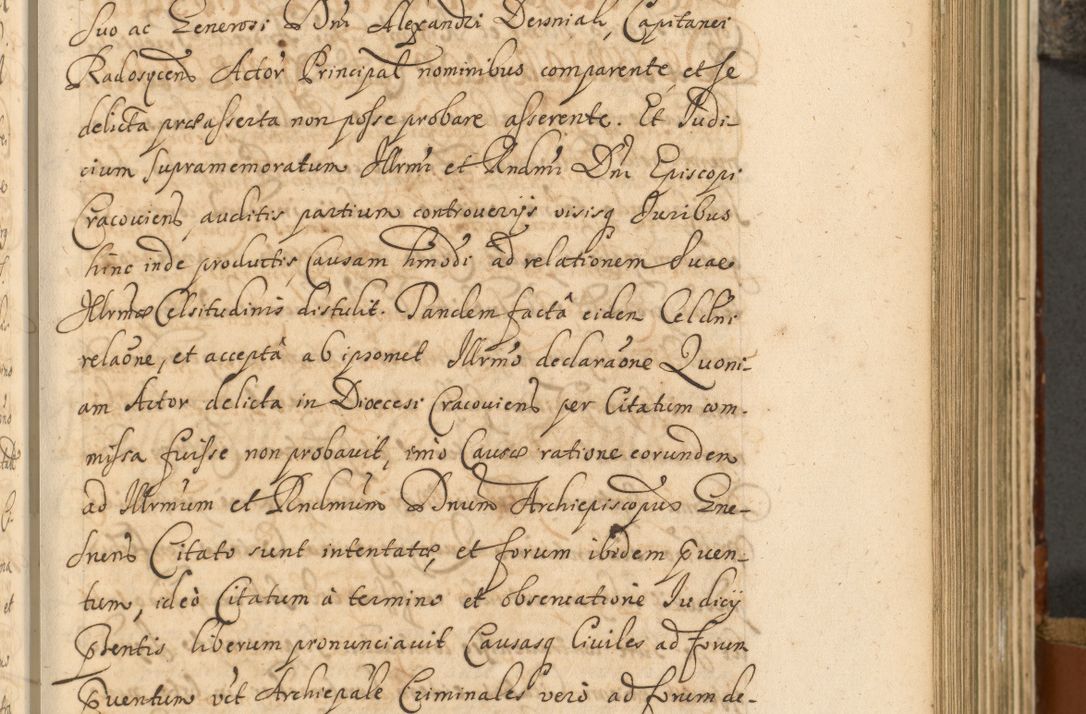 suo ac Generosi Dni Alexandri Dersniak, Capitanei
Radosycens Actor Principal nominibus comparente, et se
delicta præasserta non posse probare asserente. Et Judi-
cium supramemoratum Illrmi et Rndmi Dni Episcopi
Cracouiens, auditis partium controuersijs visisq Juribus
hinc inde productis, Causam hmodi ad relationem Suae
Illrmæ Celsitudinis distulit. Tandem factâ eiden Celdni
relaõne, et acceptâ ab ipsomet Illrmo declaraõne Quoni-
am Actor delicta in Dioecesi Cracouiens per Citatum com-
missa fuisse non probauit, imo Causæ ratione eorundem
ad Illrmum et Rndmum Dnum Archiepiscopum Gne-
snens Citato sunt intentatæ, et forum ibidem pruen-
tum, ideò Citatum à termino et obseruatione Judicij
pñtis liberum pronunciauit Causasq Ciuiles ad forum
pruentum vct Archiepale Criminales verò ad forum de-